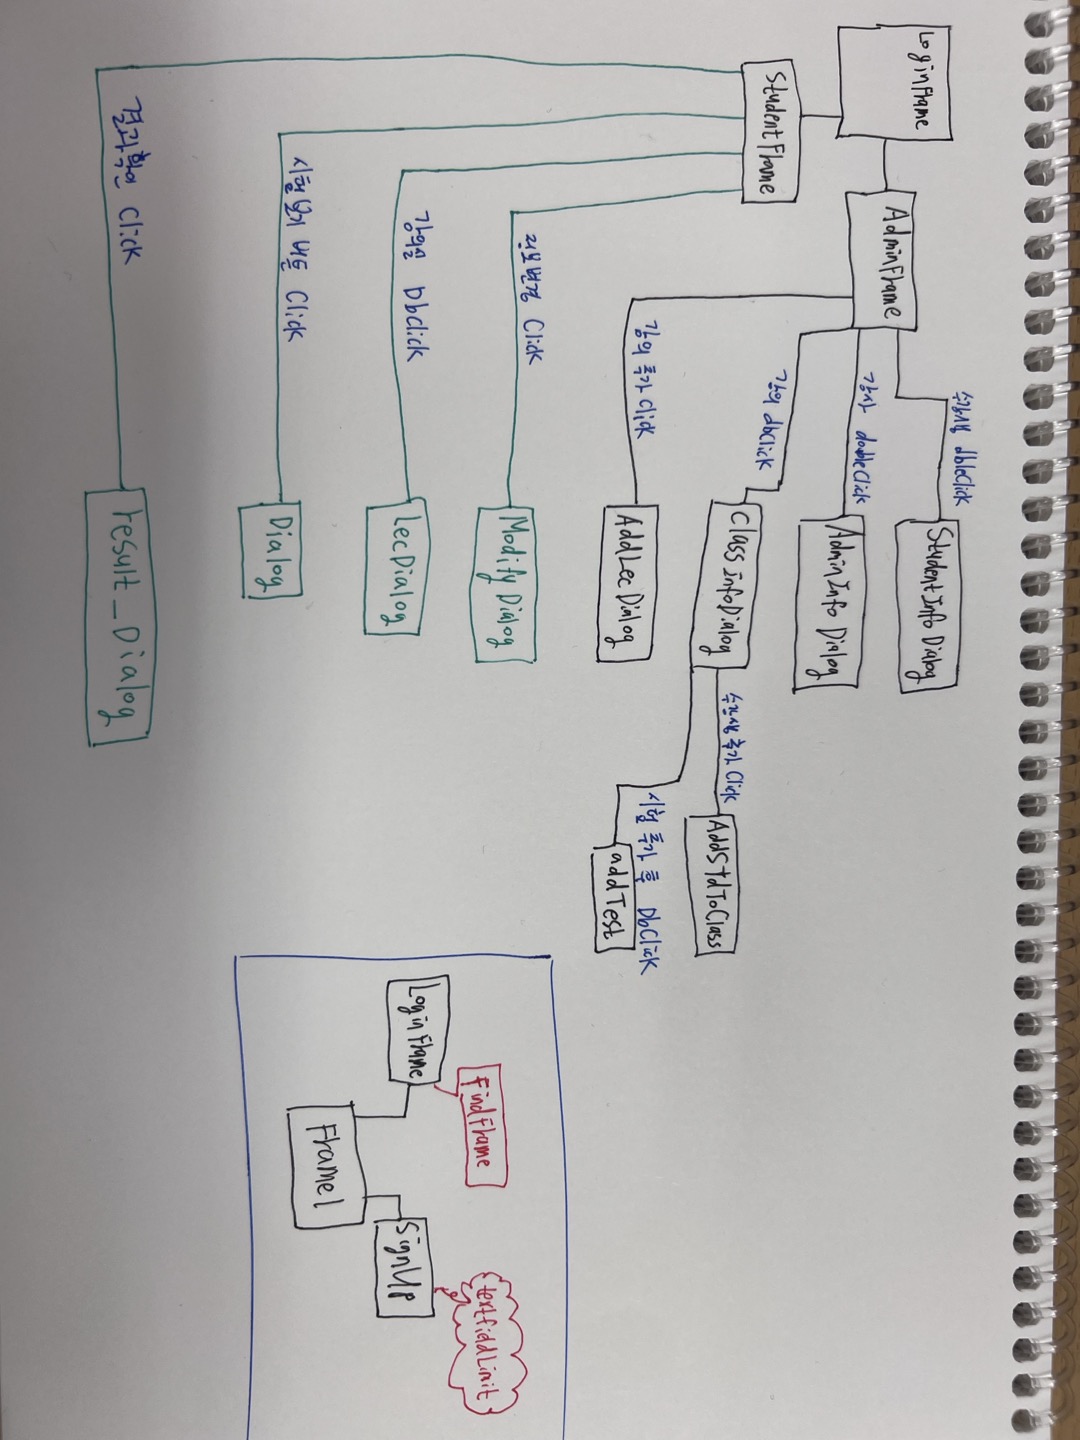 LoginFrame
AdminFrame
수강생 dbleClick
StudentInfo Dialog
강사 doubleClick
AdminInfo Dialog
강의 dbClick
Class InfoDialog
수강생 추가 Click
AddStdToClass
시험 추가 후 DbClick
addTest
강의 추가 Click
AddLec Dialog
StudentFrame
정보변경 Click
Modify Dialog
강의실 Dbclick
LecDialog
시험보기 버튼 Click
Dialog
결과확인 Click
result_Dialog
FindFrame
textfieldLimit
LoginFrame
SignUp
Frame1